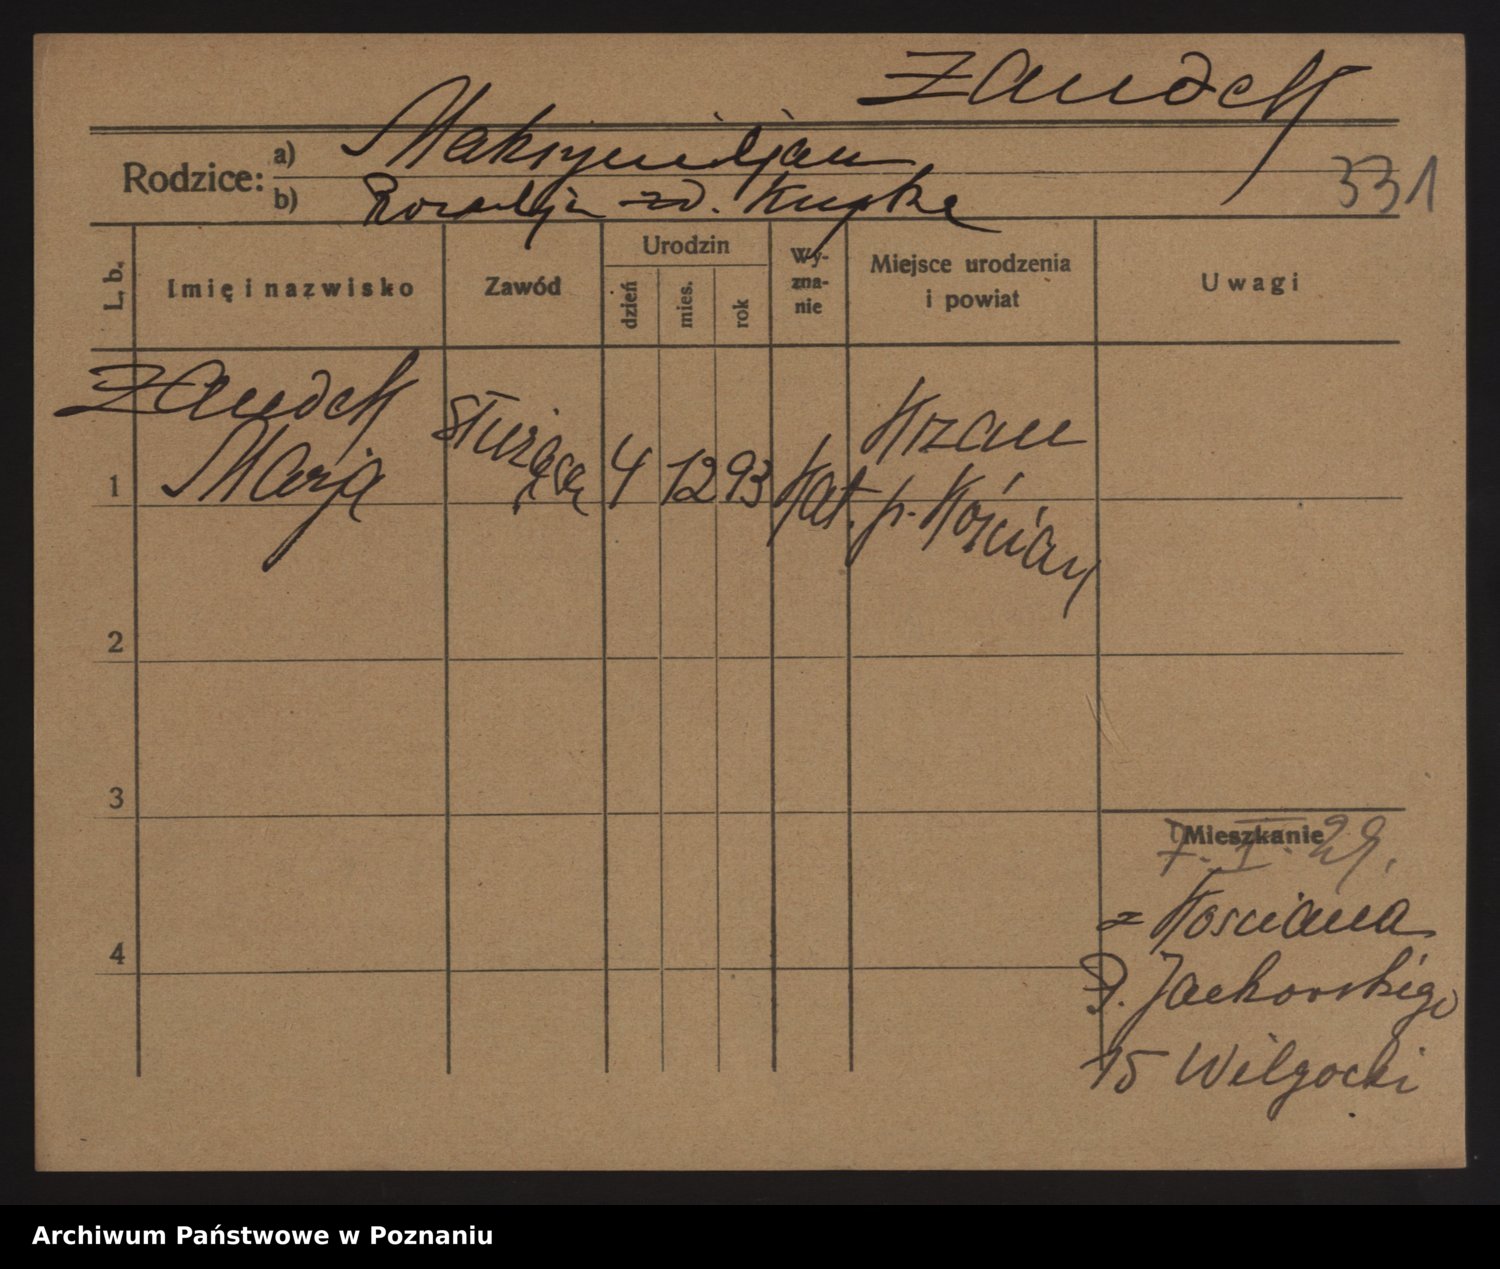 Zaudek
Rodzice:
a) Maksymiljan
b) Rozalja zd. Kupke
331
L. b.
Imię i nazwisko
Zawód
Urodzin
dzień
mies.
rok
Wy-
zna-
nie
Miejsce urodzenia
i powiat
Uwagi
1
Zaudek
Marja
Służąca
4
12
93
Kat.
Krzan
p. Kościan
2
3
4
Mieszkanie
7. I. 29.
z Kościana
P. Jackowskigo
15 Wilgocki
Archiwum Państwowe w Poznaniu